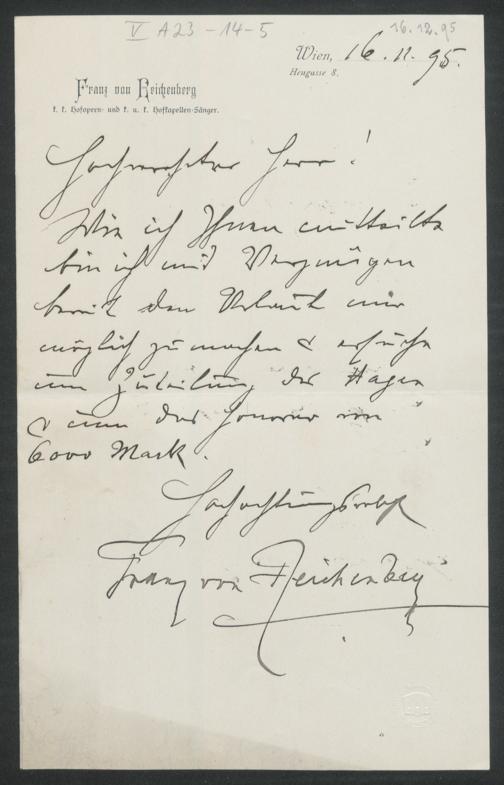 V A23-14-5
16.12.95
Wien, 16. 12. 95.
Heugasse 8.
Franz von Reichenberg
k. k. Hofopern- und k. u. k. Hofkapellen-Sänger.
Hochverehrter Herr!
Wie ich Ihnen mitteilte
bin ich mit Vergnügen
bereit den Urlaub mir
möglich zu machen & ersuche
um Zuteilung des Hagen
& um das Honorar von
6000 Mark.
Hochachtungsvollst
Franz von Reichenberg